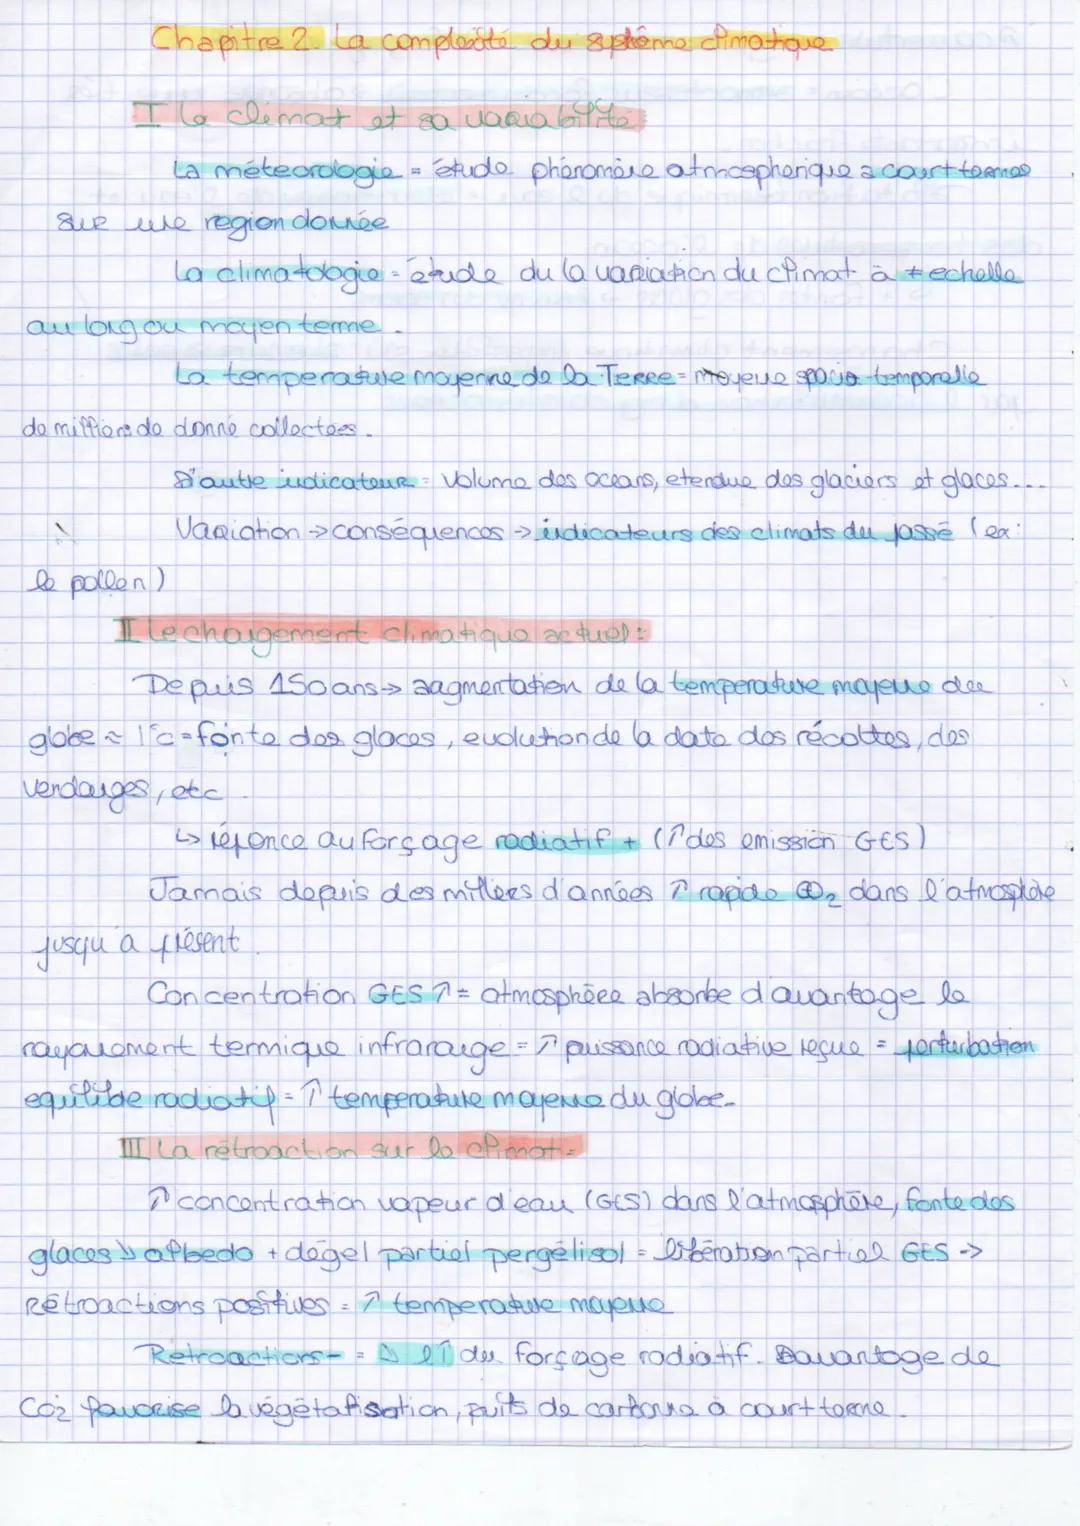 Chapitre 2. La complexité du système climatique
I le climat et sa variabilité
La méteorologie = étude phénomène atmospherique a court termes
sur une region donnée
La climatologie = étude du la variation du climat à ≠ echelle
au long ou moyen terme.
La temperature moyenne de la Terre = moyenne spacio-temporelle
de millions de donné collectées.
D'autre indicateur = volume des oceans, etendue des glaciers et glaces...
Variation → conséquences → indicateurs des climats du passé (ex:
le pollen)
II Le changement climatique actuel :
Depuis 150 ans → augmentation de la temperature moyenne du
globe ≈ 1°c = fonte des glaces, evolution de la date des récoltes, des
vendanges, etc.
↳ réponce au forçage radiatif + (↗ des emission GES)
Jamais depuis des milliers d'années ↗ rapide CO₂ dans l'atmosphère
jusqu'a présent.
Concentration GES ↗ = atmosphère absorbe d'avantage le
rayonnement termique infrarouge = ↗ puissance radiative reçue = perturbation
equilibre radiatif = ↑ temperature moyenne du globe.
III La rétroaction sur le climat =
↗ concentration vapeur d'eau (GES) dans l'atmosphère, fonte des
glaces ↘ albedo + dégel partiel pergélisol = libération partiel GES ->
Rétroactions positives = ↗ temperature moyenne
Retroactions - = ↘ l'↑ du forçage radiatif. Davantage de
CO2 favorise la végétalisation, puits de carbone à court terme.